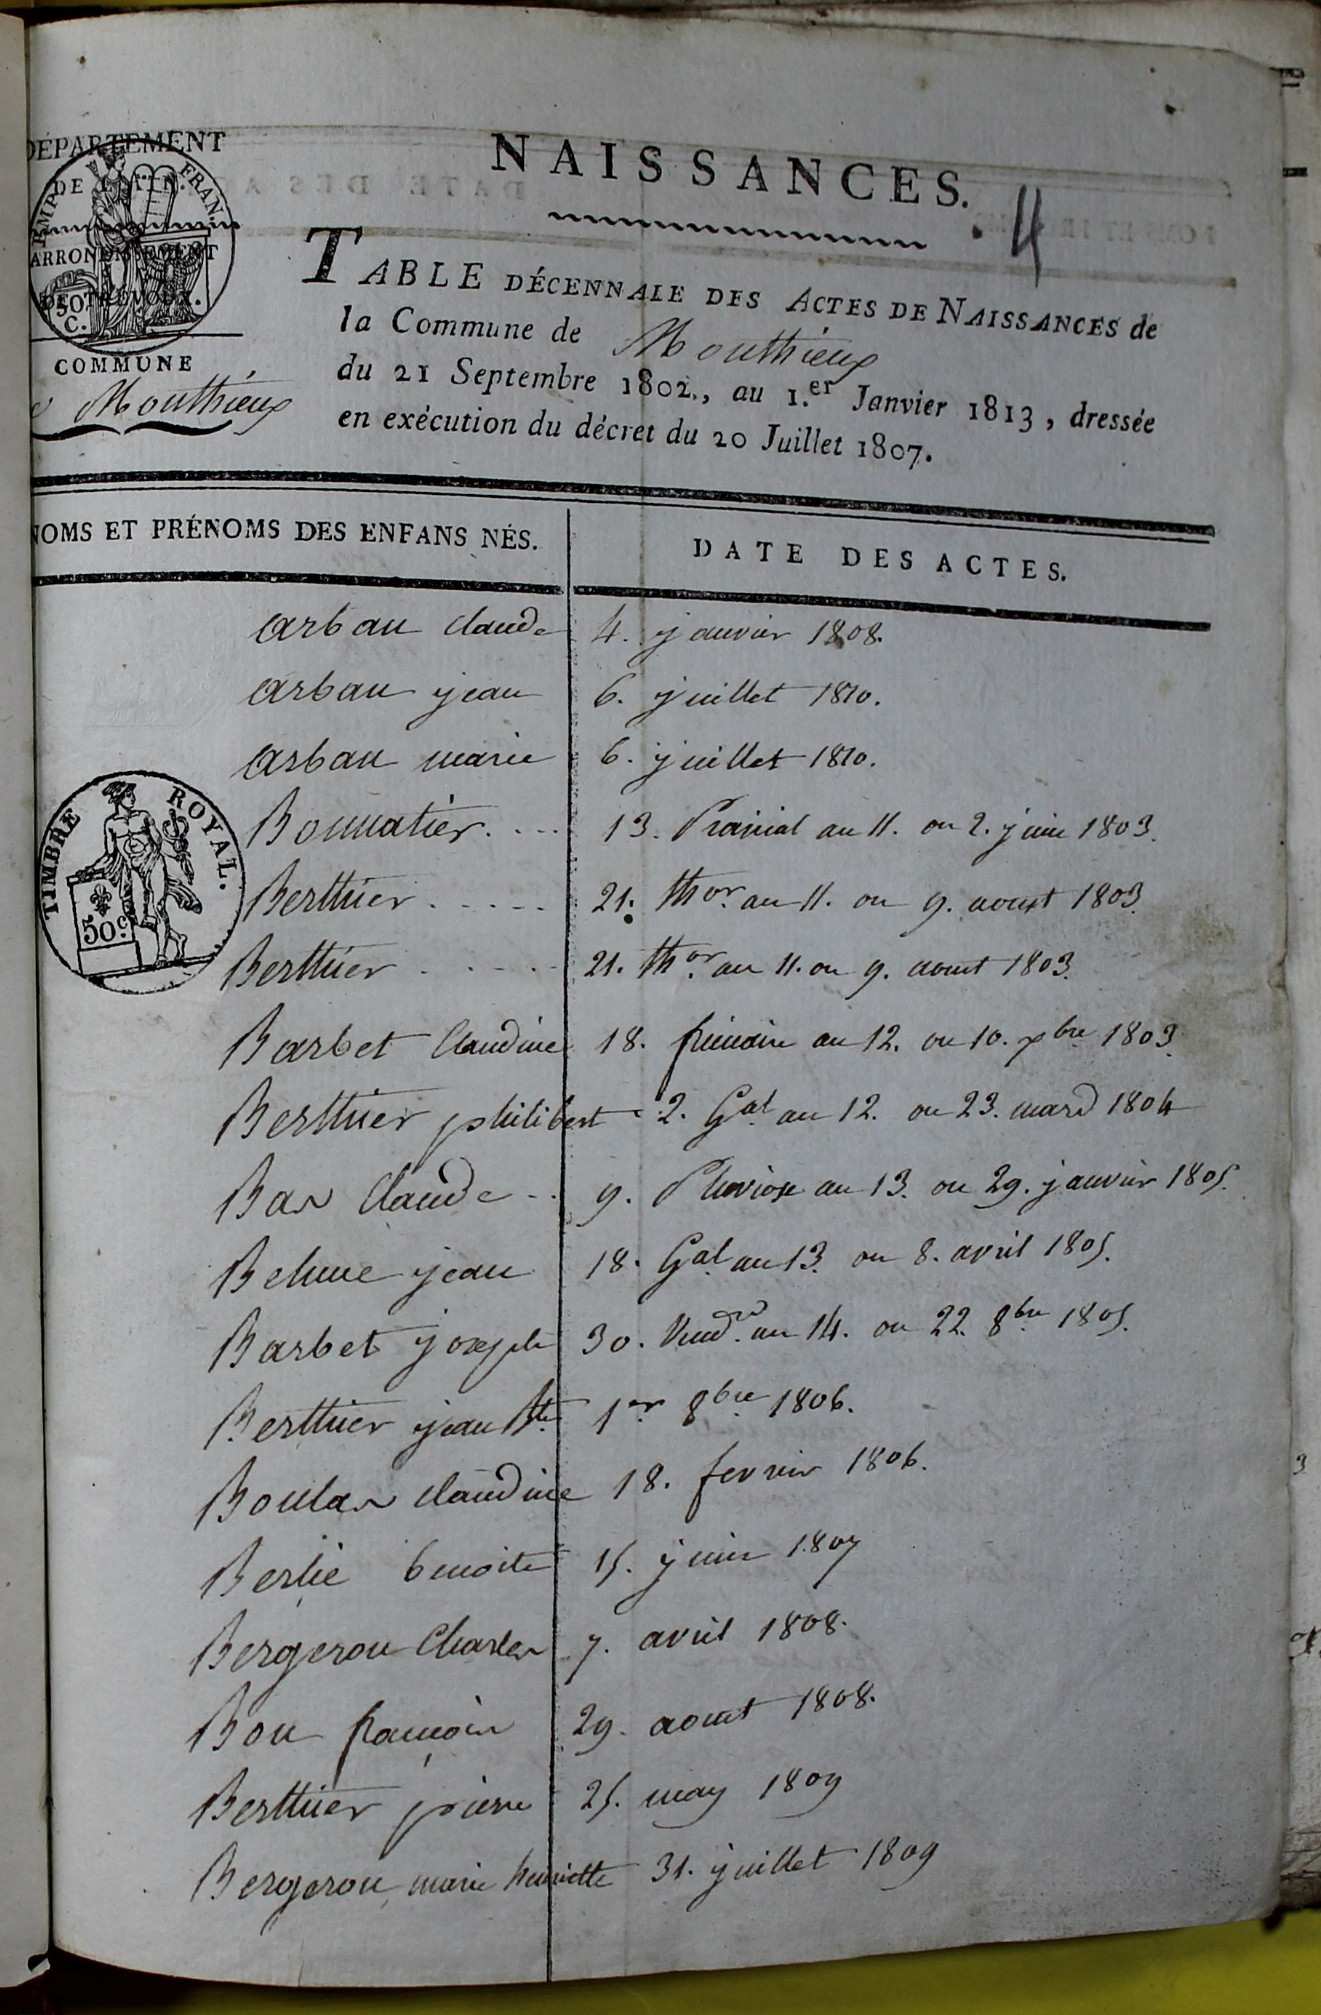 DÉPARTEMENT
DE L'AIN.
EMP. FRAN.
ARRONDISSEMENT
DE TRÉVOUX.
50
C.
COMMUNE
Monthieux
NAISSANCES.
4
TABLE DÉCENNALE DES ACTES DE NAISSANCES de
la Commune de Monthieux
du 21 Septembre 1802., au 1.er Janvier 1813, dressée
en exécution du décret du 20 Juillet 1807.
NOMS ET PRÉNOMS DES ENFANS NÉS. DATE DES ACTES.
arban claude 4. janvier 1808.
arban jean 6. juillet 1810.
arban marie 6. juillet 1810.
TIMBRE ROYAL.
50.c
Bonnatier. . . . 13. Prairial an 11. ou 2. juin 1803.
Berthier . . . . . 21. thor. an 11. ou 9. aoust 1803.
Berthier . . . . . 21. thor. an 11. ou 9. aout 1803.
Barbet Claudine 18. frimaire an 12. ou 10. xbre 1803.
Berthier philibert 2. Gal. an 12. ou 23. mars 1804
Bas Claude . . 9. Pluviose an 13. ou 29. janvier 1805.
jean 18. Gal. an 13. ou 8. avril 1805.
Barbet joseph 30. Vendre. an 14. ou 22. 8bre 1805.
Berthier jean Bte. 1er 8bre 1806.
Boulas claudine 18. fevrier 1806.
Berlie benoite 15. juin 1807
Bergeron Charles 7. avril 1808.
Bon francois 29. aout 1808.
Berthier pierre 25. may 1809
Bergeron marie henriette 31. juillet 1809